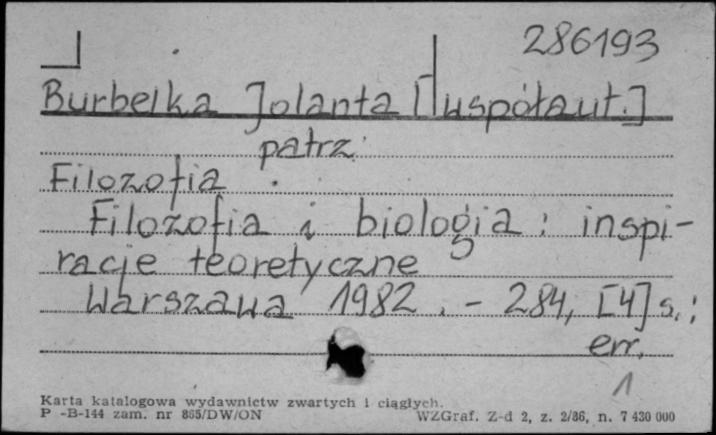 286193
Burbelka Jolanta [współaut.]
patrz:
Filozofia
Filozofia i biologia : inspi-
racje teoretyczne
Warszawa 1982. - 284, [4] s. ;
err.
1
Karta katalogowa wydawnictw zwartych i ciągłych.
P -B-144 zam. nr 865/DW/ON WZGraf. Z-d 2, z. 2/86, n. 7 430 000